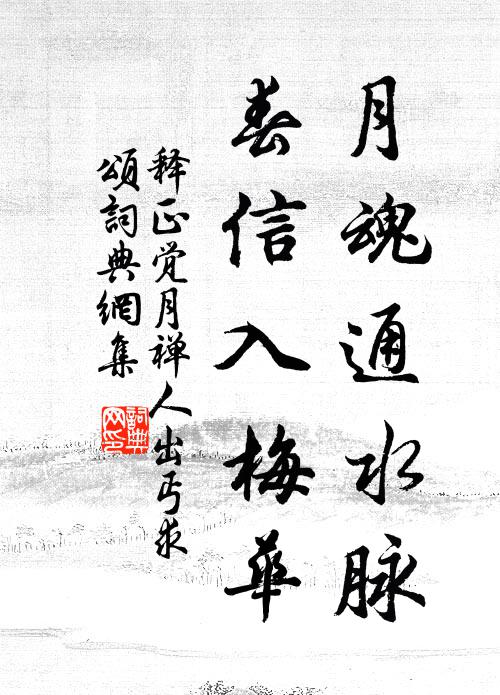 月魂通水脉
春信入梅華
释正觉月禅人出丐求
頌詞典網集
詞典
网印